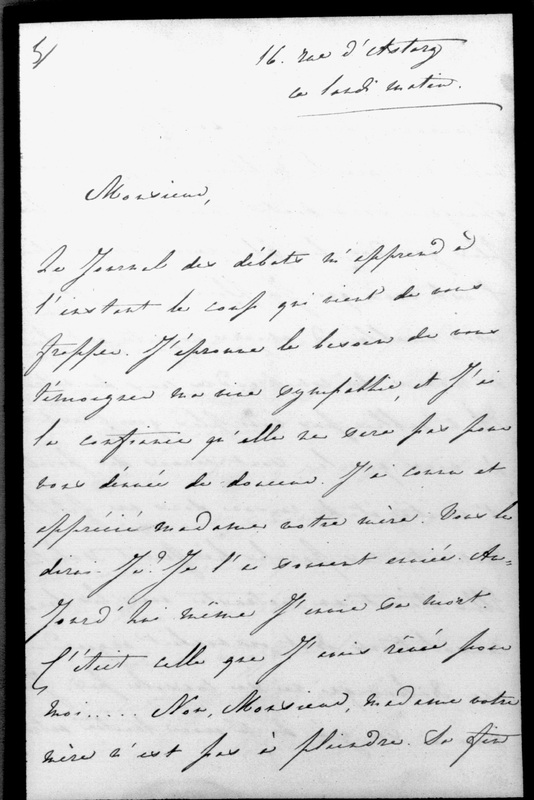 16. rue d'Astorg
ce lundi matin.
Monsieur,
Le Journal des débats m'apprend à
l'instant le coup qui vient de vous
frapper. J'éprouve le besoin de vous
témoigner ma vive sympathie, et J'ai
la confiance qu'elle ne sera pas pour
vous dénuée de douceur. J'ai connu et
apprécié madame votre mère. Vous le
dirai-Je? Je l'ai souvent enviée. Au-
Jourd'hui même J'envie sa mort.
C'était celle que J'avais rêvée pour
moi..... Non, Monsieur, madame votre
mère n'est pas à plaindre. Sa fin